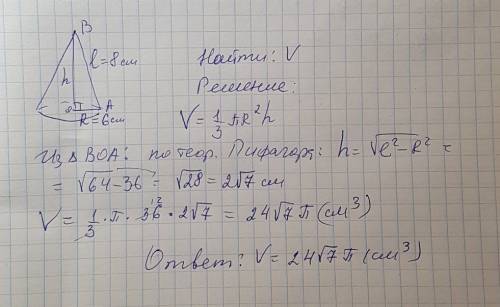 B
l=8см
h
O
A
R=6см
Найти: V
Решение:
V = 1/3 πR²h
Из ΔBOA: по теор. Пифагора: h = √(l²-R²) =
= √(64-36) = √28 = 2√7 см
V = 1/3 · π · 36 12 · 2√7 = 24√7 π (см³)
Ответ: V = 24√7 π (см³)